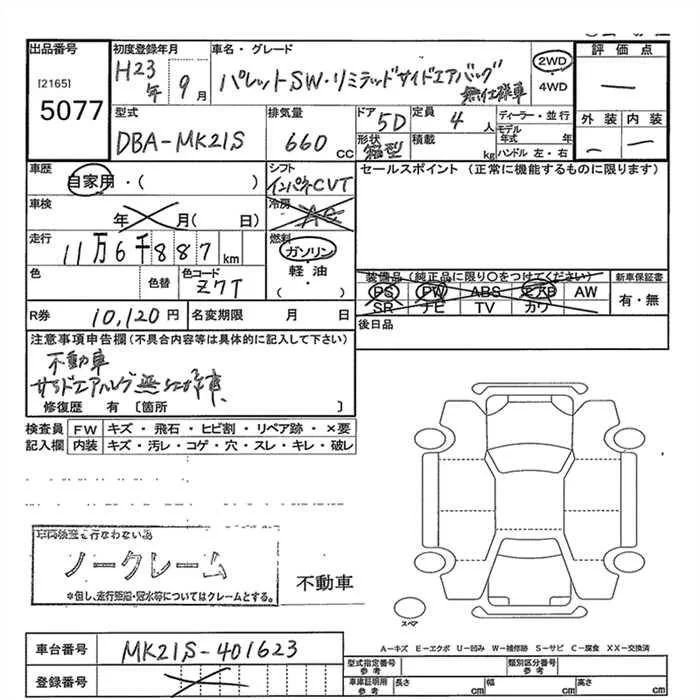 出品番号
初度登録年月
車名・グレード
評価点
[2165]
5077
H23年 9月
パレットSW・リミテッドサイドエアバッグ
無仕様車
2WD
・
4WD
型式
DBA-MK21S
排気量
660 cc
ドア
5D
定員
4人
形状
箱型
積載
kg
ディーラー・並行
モデル年式 年
ハンドル 左・右
外装
内装
車歴
自家用・( )
シフト
インパネCVT
セールスポイント (正常に機能するものに限ります)
車検
年 月( 日)
冷房
AC
走行
11万6千887km
燃料
ガソリン
軽油
( )
色
色替
色コード
Z7T
装備品 (純正品に限り○をつけてください)
PS
PW
ABS
エアB
AW
SR
ナビ
TV
カワ
新車保証書
有・無
R券
10,120円
名変期限 月 日
後日品
注意事項申告欄(不具合内容等は具体的に記入して下さい)
不動車
サイドエアバッグ無仕様車
修復歴 有 〔箇所 〕
検査員
記入欄
FW
キズ・飛石・ヒビ割・リペア跡・×要
内装
キズ・汚レ・コゲ・穴・スレ・キレ・破レ
ノークレーム
*但し、走行距離・冠水等についてはクレームとする。
不動車
スペア
A-キズ E-エクボ U-凹み W-補修跡 S-サビ C-腐食 XX-交換済
車台番号
MK21S-401623
登録番号
型式指定番号
参考
類別区分番号
参考
車庫証明用
参考
長さ cm
幅 cm
高さ cm